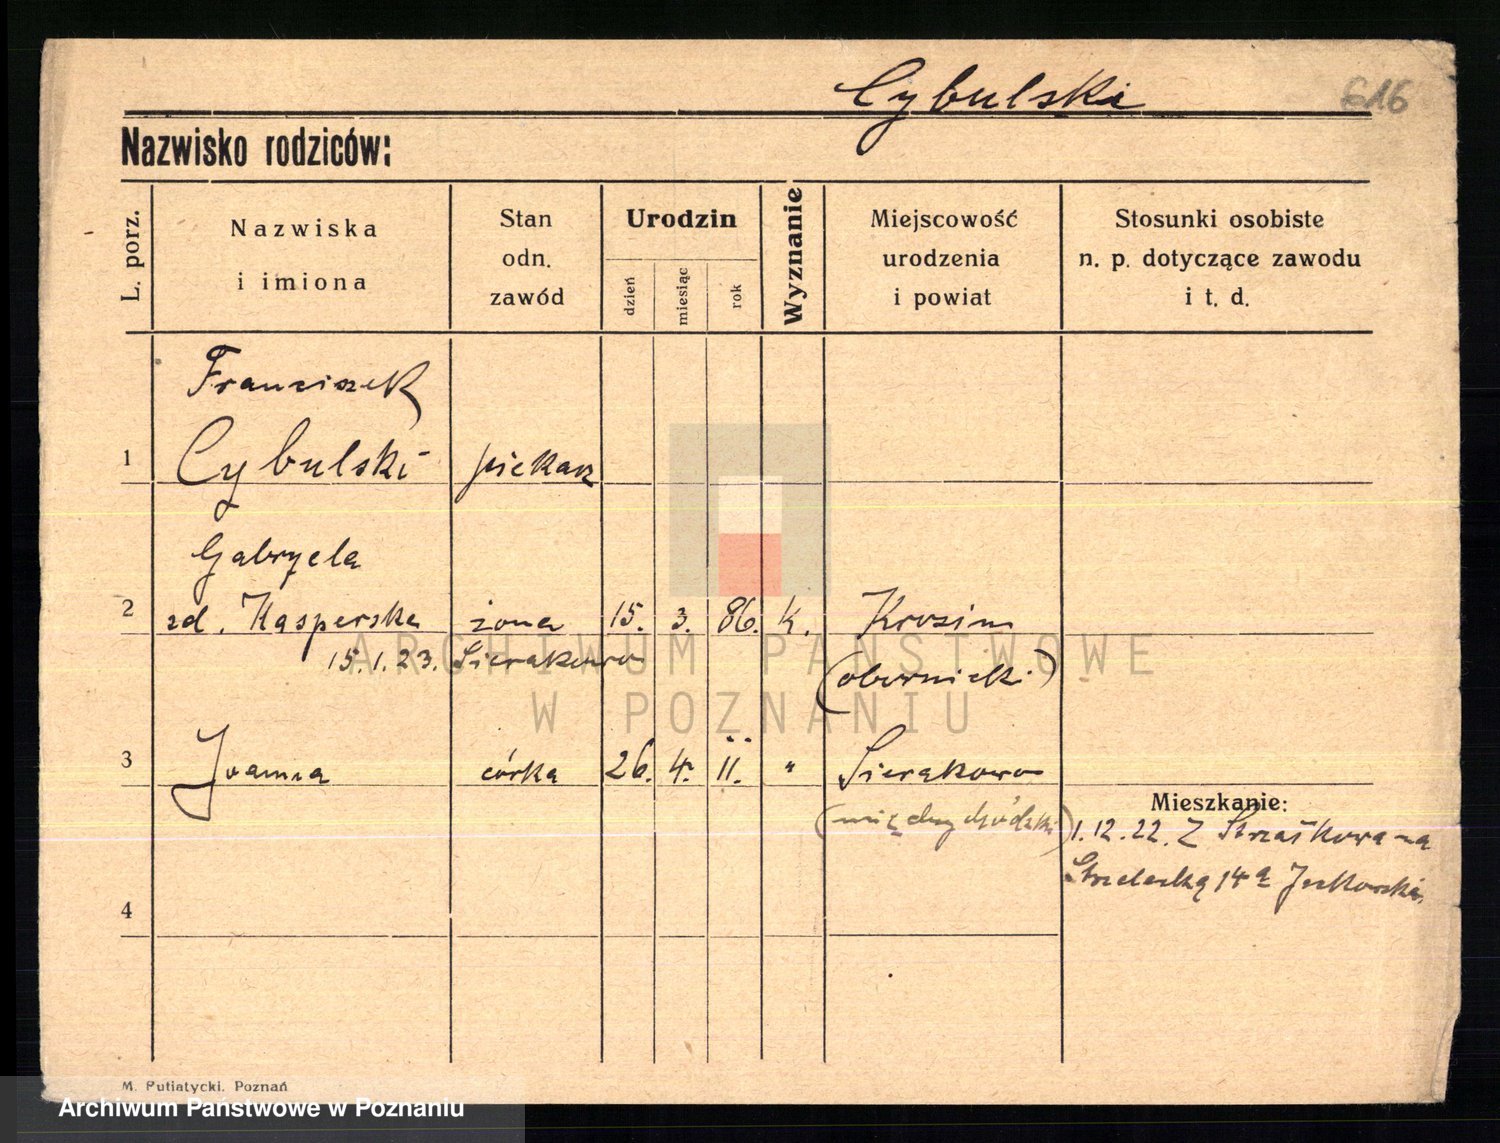 Cybulski
616
Nazwisko rodziców:
L. porz.
Nazwiska
i imiona
Stan
odn.
zawód
Urodzin
dzień
miesiąc
rok
Wyznanie
Miejscowość
urodzenia
i powiat
Stosunki osobiste
n. p. dotyczące zawodu
i t. d.
Franciszek
1 Cybulski piekarz
Gabryela
2 zd. Kasperska żona 15. 3. 86. k. Krosin
15.1.23. Sierakowo (obornicki)
3 Joanna córka 26. 4. 11. " Sierakowo
(międzychódzki)
Mieszkanie:
1.12.22. Z na
Strzelecką 14a
4
ARCHIWUM PAŃSTWOWE
W POZNANIU
M. Putiatycki. Poznań
Archiwum Państwowe w Poznaniu